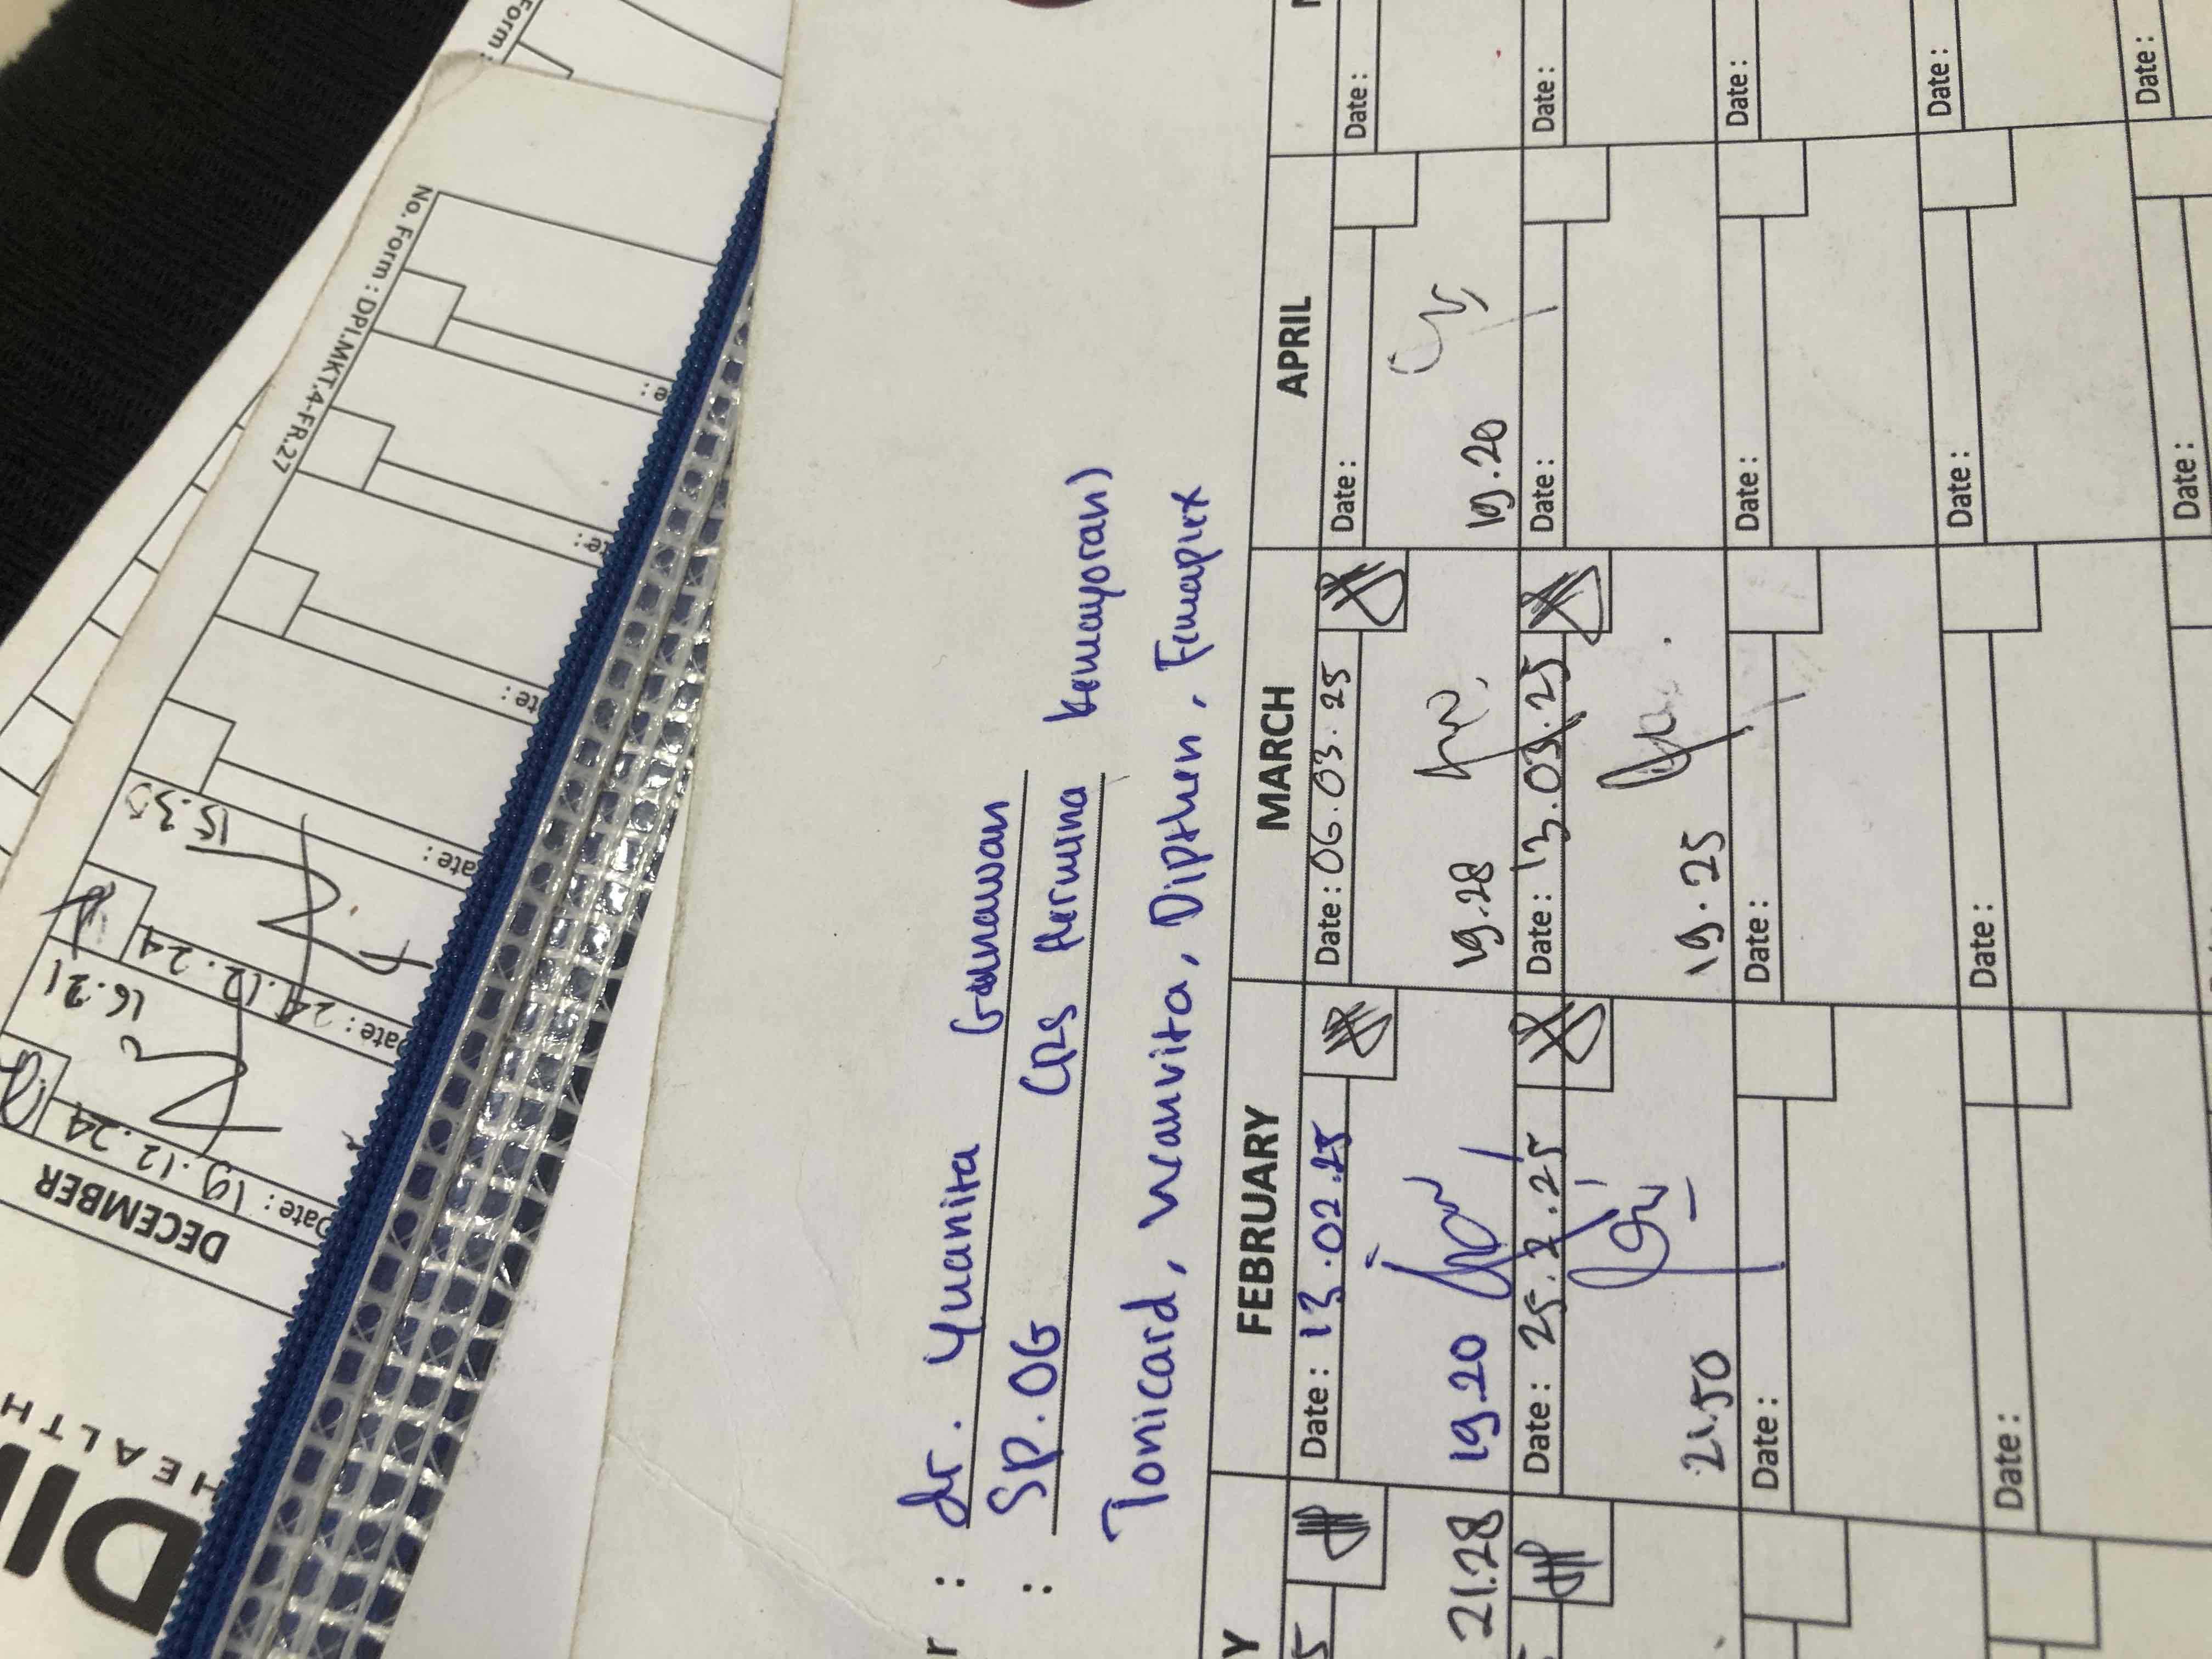 r : dr. Yuanita Gunawan
: SP.OG (RS Hermina Kemayoran)
Tonicard, Wanvita, Dipthen, Femaplex
Y
FEBRUARY
MARCH
APRIL
5
Date: 13.02.25
Date: 06.03.25
Date:
Date:
21.28
19.20
19.28
19.20
Date: 25.2.25
Date: 13.03.25
Date:
Date:
21.50
19.25
Date:
Date:
Date:
Date:
Date:
Date:
Date:
Date:
Date:
Date:
HEALTH
DECEMBER
Date: 19.12.24
16.21
Date: 24.12.24
15.30
ate:
te:
te:
e:
No. Form : DPI.MKT.4-FR.27
Form :